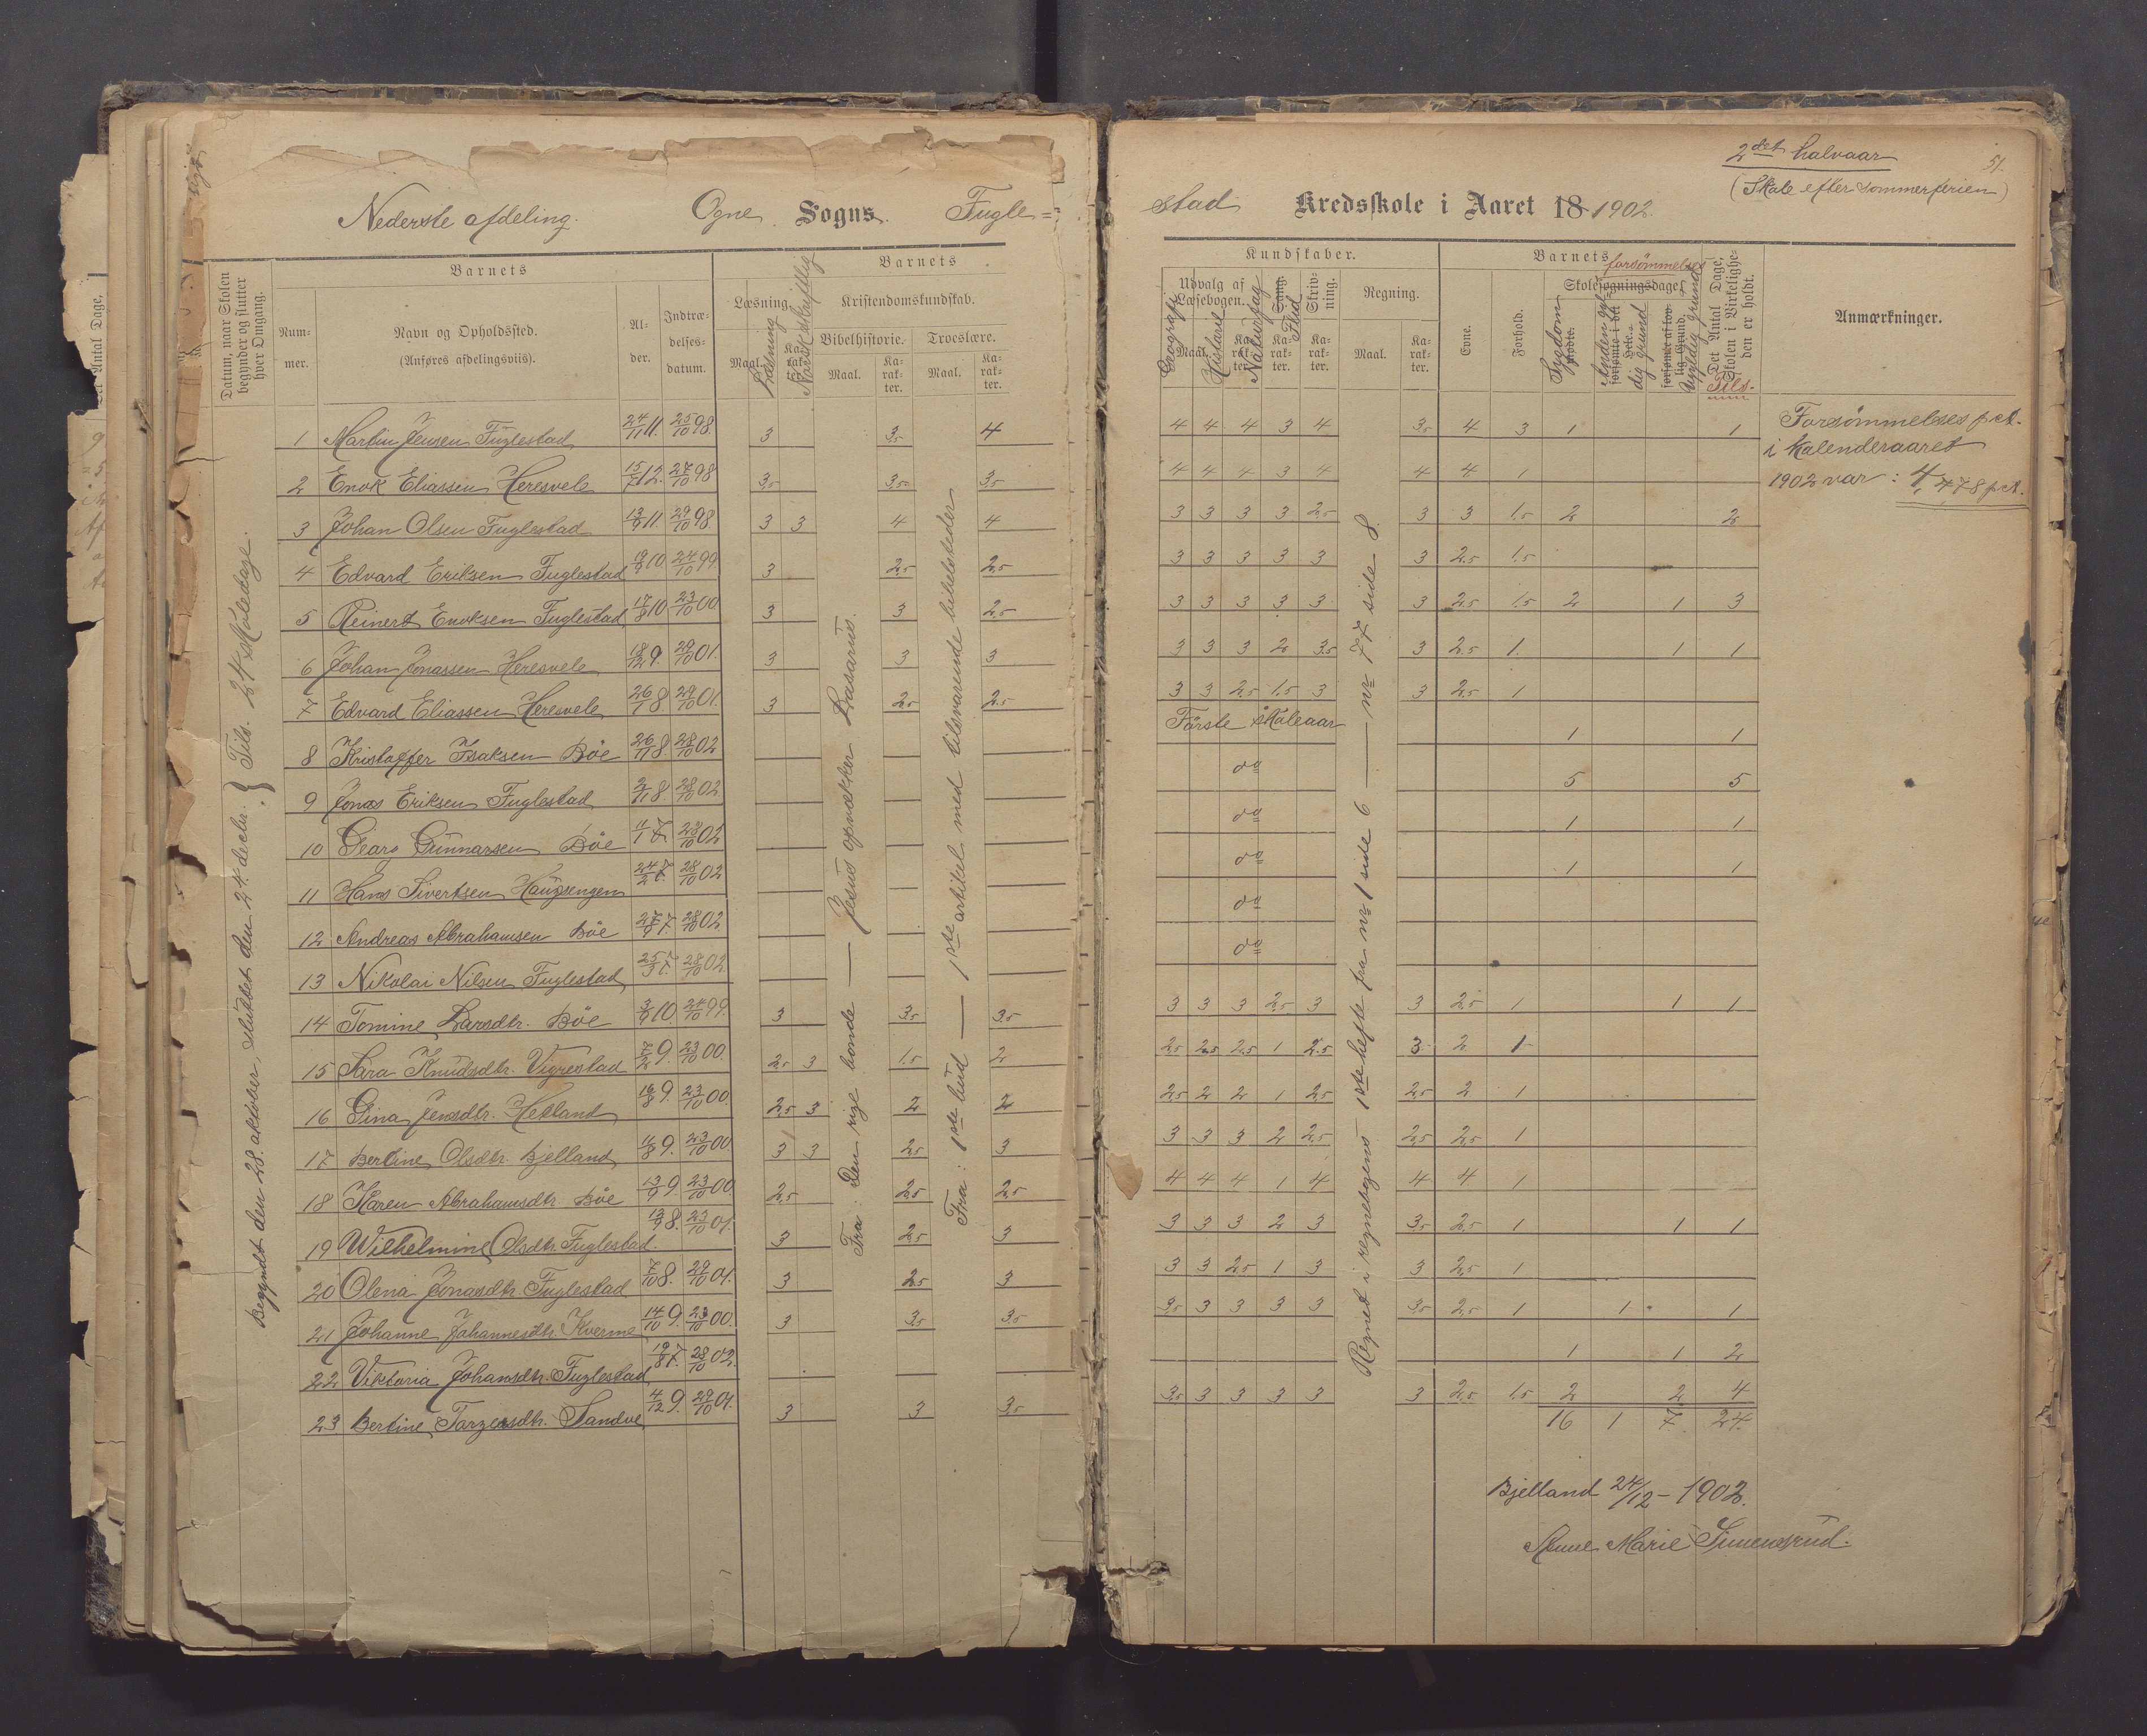 2det halvaar
51.
(Skole efter sommerferien)
Nederste afdeling. Ogne Sogns. Fugle=
stad Kredsskole i Aaret 18 1902.
Datum, naar Skolen begynder og slutter hver Omgang.
Barnets
Num-
mer.
Navn og Opholdssted.
(Anføres afdelingsviis).
Al-
der.
Indtræ-
delses-
datum.
Barnets
Læsning.
Maal.
Ka-
rak-
ter.
Læsning
Norsk skriftlig
Kristendomskundskab.
Bibelhistorie.
Troeslære.
Maal.
Ka-
rak-
ter.
Maal.
Ka-
rak-
ter.
Kundskaber.
Udvalg af
Læsebogen.
Maal.
Ka-
rak-
ter.
Geografi
Historie
Naturfag
Sang.
Flid
Ka-
rak-
ter.
Skriv-
ning.
Ka-
rak-
ter.
Regning.
Maal.
Ka-
rak-
ter.
Barnets
Evne.
Forhold.
forsømmelser
Skolesøgningsdage,
Sygdom
mødte.
Anden gyl-
dig grund
forsømte i det Hele.
Ugyldig grund
forsømt af lov-
lig Grund.
Det Antal Dage, Skolen i Virkelighe- den er holdt.
Tils.
Anmærkninger.
Begyndt den 28. oktober, sluttet den 24. decbr. } Tils. 24 skoledage.
1 Martin Jensen Fuglestad 24/11 11. 25/10 98. 3 3,5 4
2 Enok Eliassen Heresvele 15/7 12. 27/10 98 3,5 3,5 3,5
3 Johan Olsen Fuglestad 13/9 11. 29/10 98. 3 3 4 4
4 Edvard Eriksen Fuglestad 10. 24/10 99 3 2,5 2,5
5 Reinert Enoksen Fuglestad 17/8 10. 23/10 00. 3 3 2,5
6 Johan Jonassen Heresvele 18/12 9. 29/10 01. 3 3 3
7 Edvard Eliassen Heresvele 26/1 8 29/10 01. 3 2,5 2,5
8 Kristoffer Isaksen Bøe 26/11 8. 28/10 02
9 Jonas Eriksen Fuglestad 2/11 8. 28/10 02
10 Georg Gunnarsen Bøe 11/1 7. 28/10 02
11 Hans Sivertsen Haugsengen 24/2 7. 28/10 02
12 Andreas Abrahamsen Bøe 27/9 7. 28/10 02
13 Nikolai Nilsen Fuglestad 25/3 7. 28/10 02.
14 Tomine Larsdtr. Bøe 3/9 10. 24/10 99. 3 3,5 3,5
15 Sara Knudsdtr. Vigrestad 7/2 9. 23/10 00. 2,5 3 1,5 2
16 Gina Jensdtr. Hetland 9. 23/10 00. 2,5 3 2 2
17 Bertine Olsdtr. Bjelland 11/8 9. 23/10 00. 3 3 2,5 3
18 Karen Abrahamsdtr. Bøe 13/9 9. 23/10 00. 2,5 2,5 2,5
19 Wilhelmine Olsdtr. Fuglestad. 13/9 8. 23/10 01. 3 2,5 3
20 Olena Jonasdtr. Fuglestad 7/10 8. 29/10 01. 3 2,5 3
21 Johanne Johannesdtr. Kverme 14/10 9. 23/10 00. 3 3,5 3,5
22 Viktoria Johansdtr. Fuglestad 19/8 7. 28/10 02.
23 Bertine Torgersdtr. Sandve 4/12 9. 29/10 01. 3 3 3,5
Fra: Den rige bonde — Jesus opvækker Lasarus.
Fra: 1ste bud — 1ste artikel med tilsvarende bibelsteder
4 4 4 3 4 3,5 4 3 1 1
4 4 4 3 4 4 4 1
3 3 3 3 2,5 3 3 1,5 2 2
3 3 3 3 3 3 2,5 1,5
3 3 3 3 3 3 2,5 1,5 2 1 3
3 3 3 2 3,5 3 2,5 1. 1 1
3 3 2,5 1,5 3 3 2,5 1
Første skoleaar 1 1
do 5 5
do 1 1
do 1 1
do
do
3 3 3 2,5 3 3 2,5 1 1 1
2,5 2,5 2,5 1 2,5 3 2 1
2,5 2 2 1 2,5 2,5 2 1
3 3 3 2 2,5 2,5 2,5 1
4 4 4 1 4 4 4 1
3 3 3 2 3 3,5 2,5 1 1 1
3 3 2,5 1 3 3 2,5 1
3,5 3 3 3 3 3,5 2,5 1 1 1
1 1 2
3,5 3 3 3 3 3 2,5 1,5 2 2 4
16 1 7 24.
Regnet i regnebogens 1ste hefte fra nr 1 side 6 — nr 77 side 8.
Forsømmelses pct.
i kalenderaaret
1902 var: 4,478 pct.
Bjelland 24/12 – 1902.
Anne Marie Simensrud.